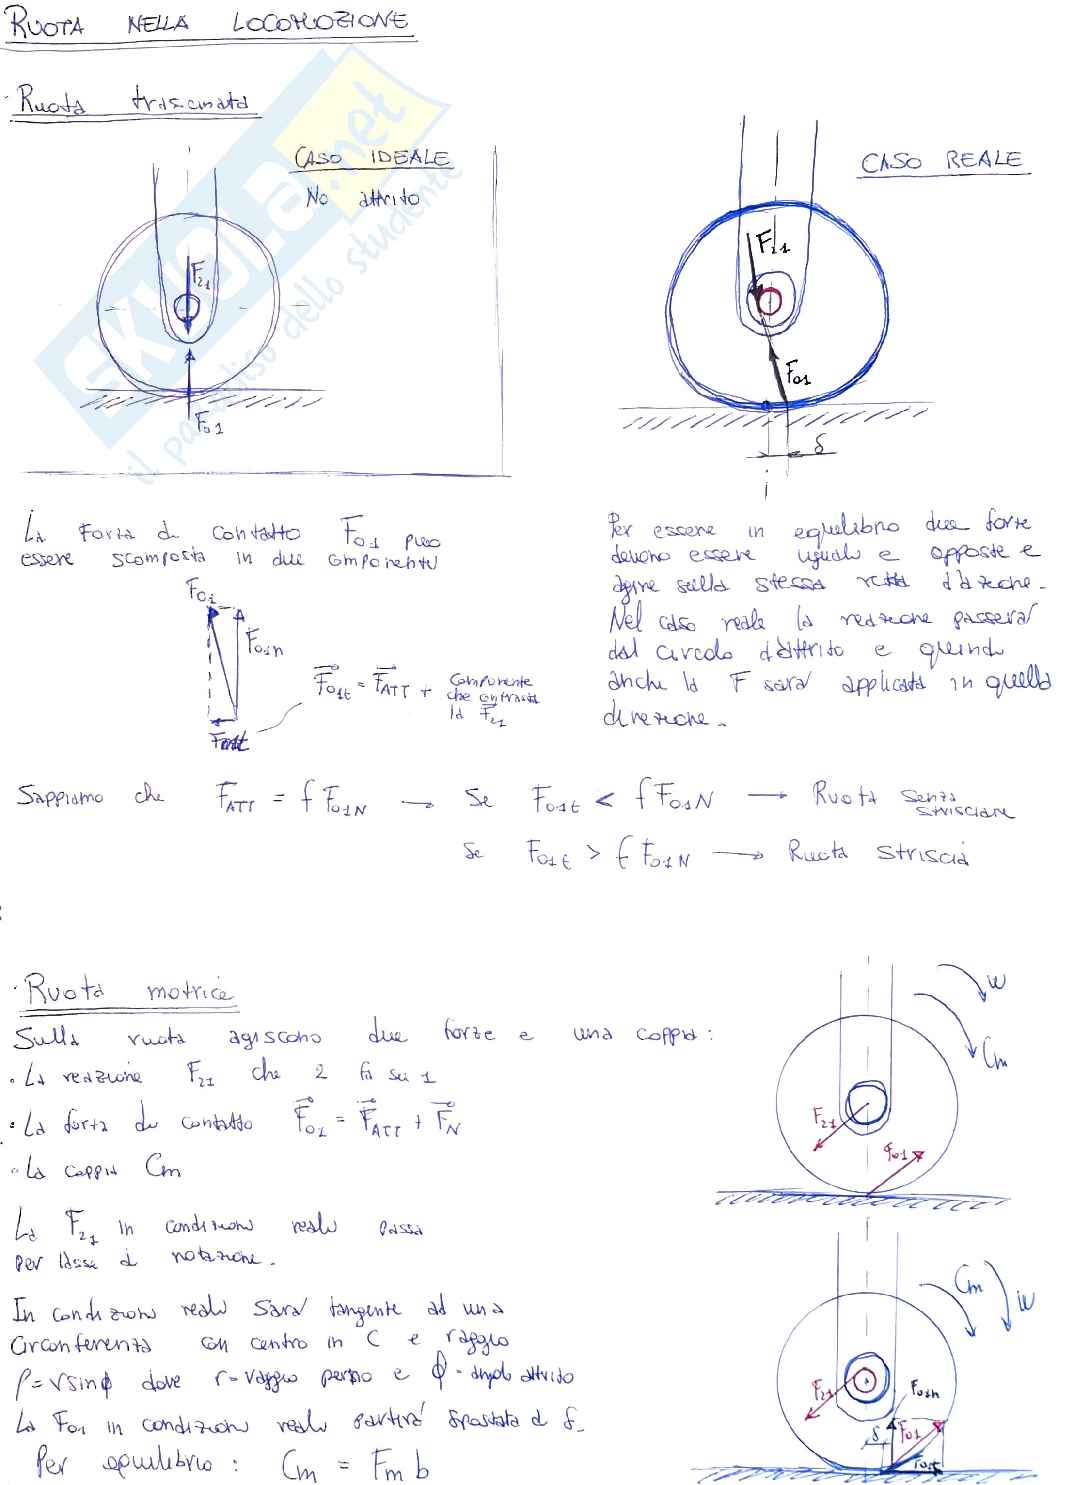 RUOTA NELLA LOCOMOZIONE
· Ruota trascinata
CASO IDEALE
No attrito
F21
F01
CASO REALE
F21
F01
δ
i
La Forza di contatto F01 può
essere scomposta in due componenti
F01
F01n
F01t
F01t = FATT + componente
che contrasta
la F21
Per essere in equilibrio due forze
devono essere uguali e opposte e
agire sulla stessa retta d'azione.
Nel caso reale la reazione passerà
dal circolo d'attrito e quindi
anche la F sarà applicata in quella
direzione.
Sappiamo che FATT = f F01N → Se F01t < f F01N → Ruota senza
strisciare
Se F01t > f F01N → Ruota striscia
· Ruota motrice
Sulla ruota agiscono due forze e una coppia:
· La reazione F21 che 2 fa su 1
· La forza di contatto F01 = FATT + FN
· La coppia Cm
La F21 in condizioni reali passa
per l'asse di rotazione.
In condizioni reali sarà tangente ad una
circonferenza con centro in C e raggio
ρ = r sinϕ dove r = raggio perno e ϕ = angolo attrito
La F01 in condizioni reali partirà spostata di δ.
Per equilibrio: Cm = Fm b
w
Cm
F21
F01
Cm
w
F21
F01n
F01
δ
F01t
SKUOLA.net
il paradiso dello studente